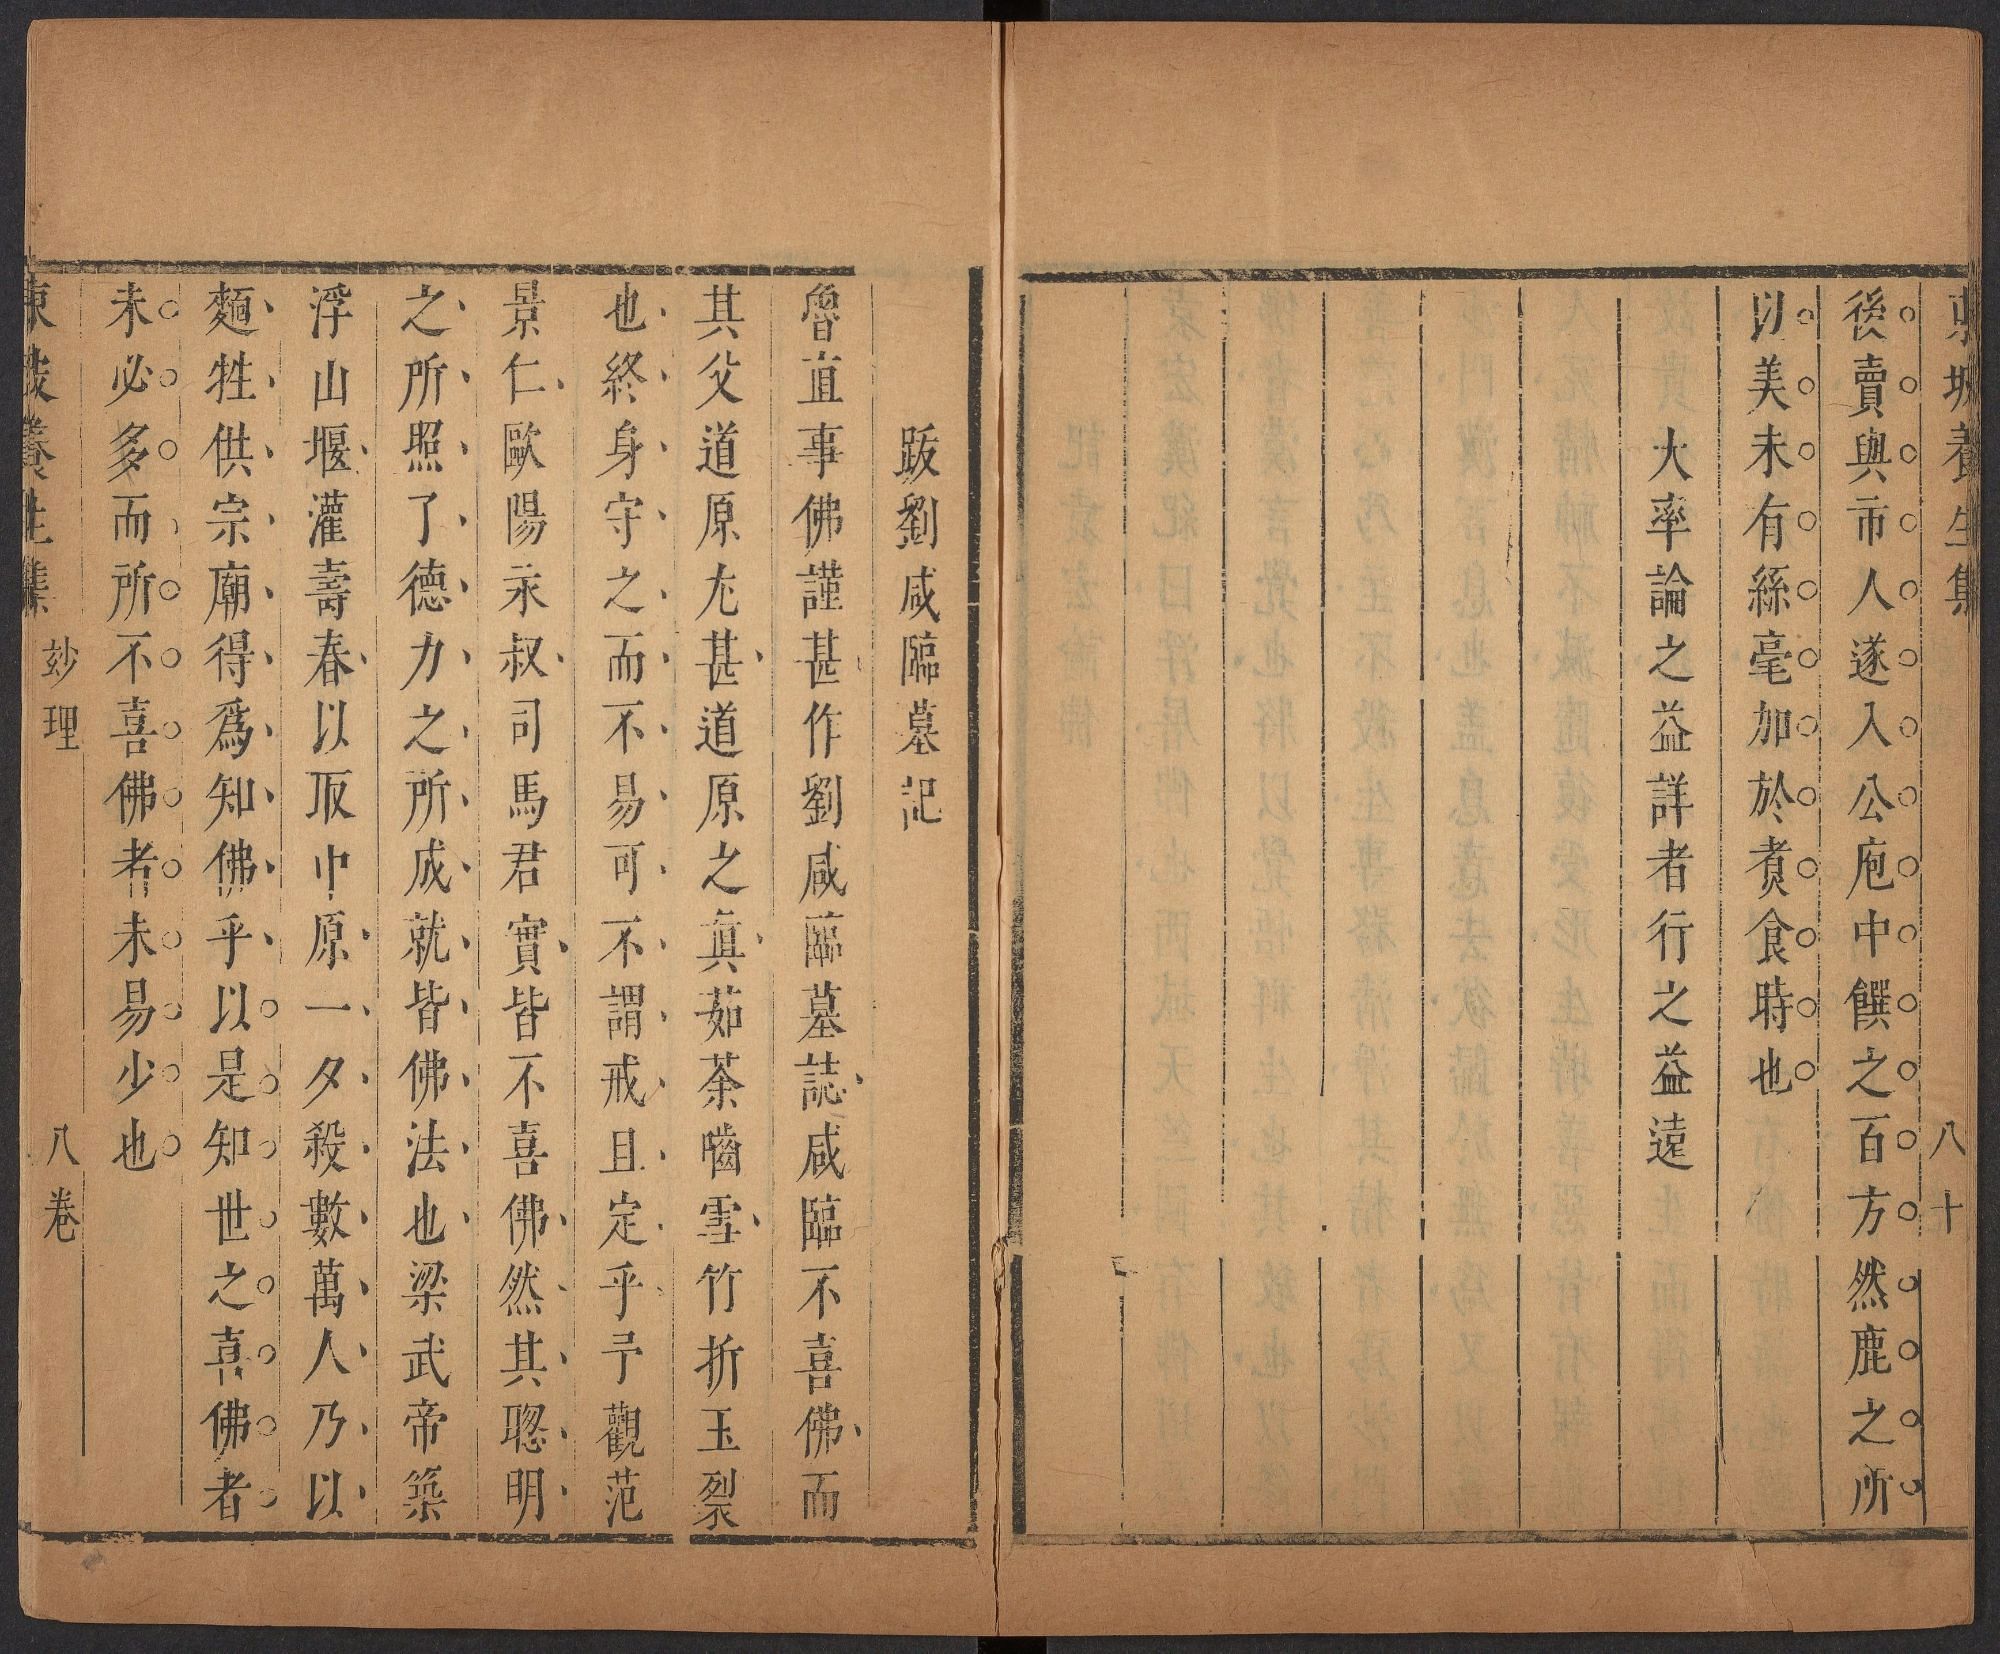 東坡養生集 八十
後賣與市人遂入公庖中饌之百方然鹿之所
以美未有絲毫加於煑食時也
大率論之益詳者行之益遠
跋劉咸臨墓記
魯直事佛謹甚作劉咸臨墓誌咸臨不喜佛而
其父道原尢甚道原之眞茹荼嚙雪竹折玉裂
也終身守之而不易可不謂戒且定乎予觀范
景仁歐陽永叔司馬君實皆不喜佛然其聰明
之所照了德力之所成就皆佛法也梁武帝築
浮山堰灌壽春以取中原一夕殺數萬人乃以
麵牲供宗廟得爲知佛乎以是知世之喜佛者
未必多而所不喜佛者未易少也
東坡養生集 妙理 八卷